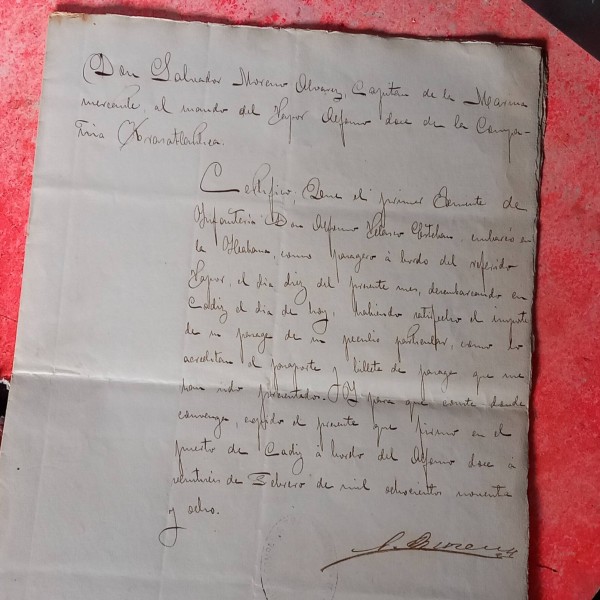 Don Salvador Moreno Alvarez, Capitán de la Marina
mercante, al mando del Vapor Alfonso doce de la Compa-
ñia Trasatlantica.
Certifico, Que el primer Teniente de
Infanteria Don Alfonso Velasco Esteban, embarcó en
la Habana, como pasagero á bordo del referido
Vapor, el dia diez del presente mes, desembarcando en
Cadiz el dia de hoy, habiendo satisfecho el importe
de su pasage de su peculio particular, como lo
acreditan el pasaporte y billete de pasage que me
han sido presentados. Y para que conste donde
convenga, expido el presente que firmo en el
puerto de Cadiz á bordo del Alfonso doce á
veintiseis de Febrero de mil ochocientos noventa
y ocho.
S. Moreno